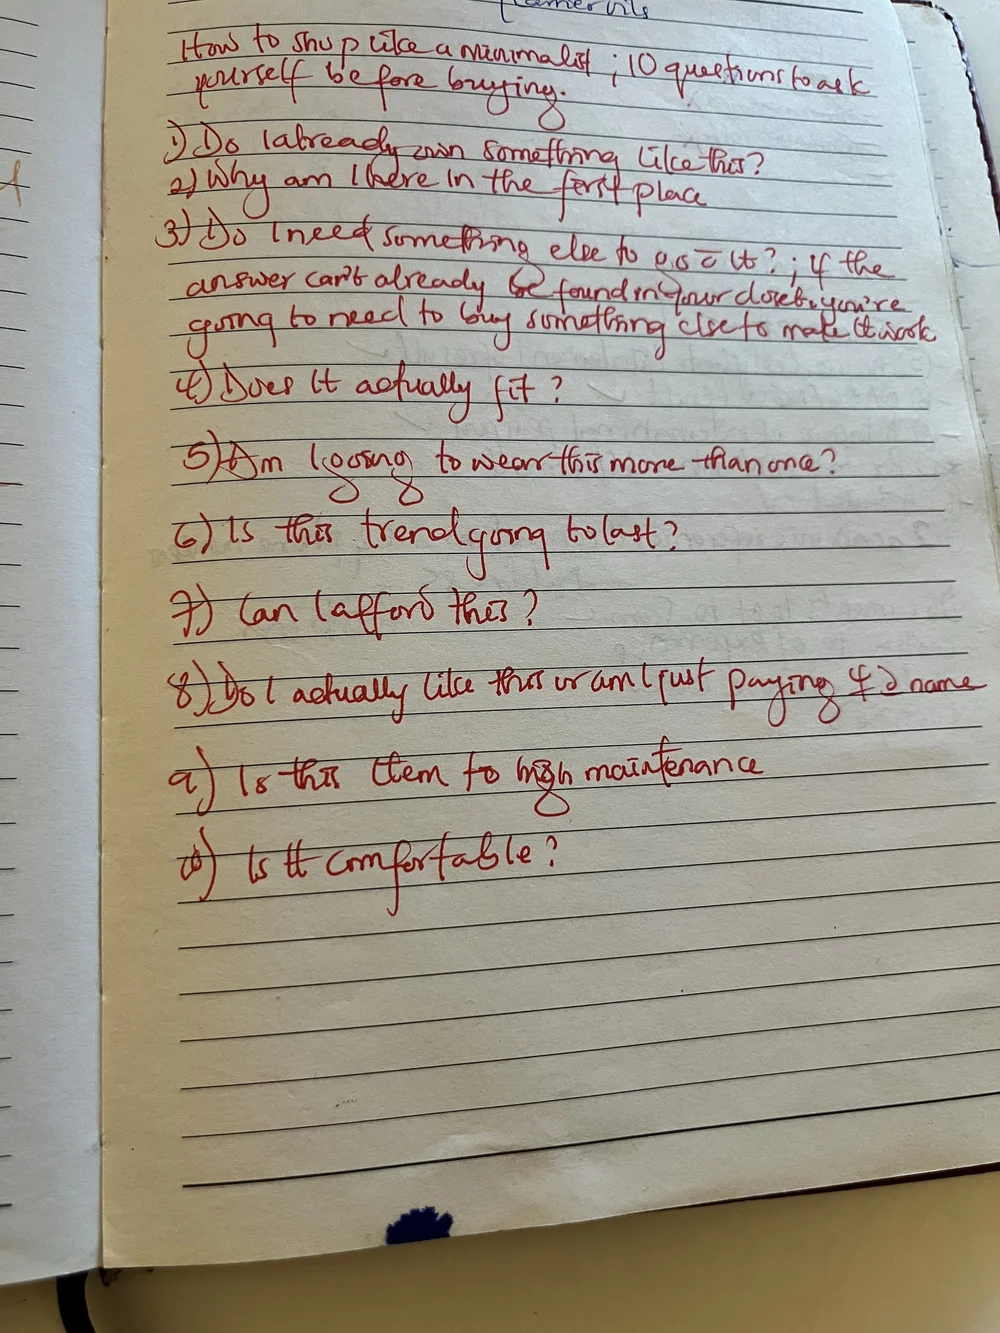 How to shop like a minimalist ; 10 questions to ask
yourself before buying.
1) Do I already own something like this?
2) Why am I here in the first place
3) Do I need something else to go c̅ it? ; if the
answer can't already be found in your closet, you're
going to need to buy something else to make it work
4) Does it actually fit?
5) Am I going to wear this more than once?
6) Is this trend going to last?
7) Can I afford this?
8) Do I actually like this or am I just paying 4 a name
9) Is this item to high maintenance
10) Is it comfortable?